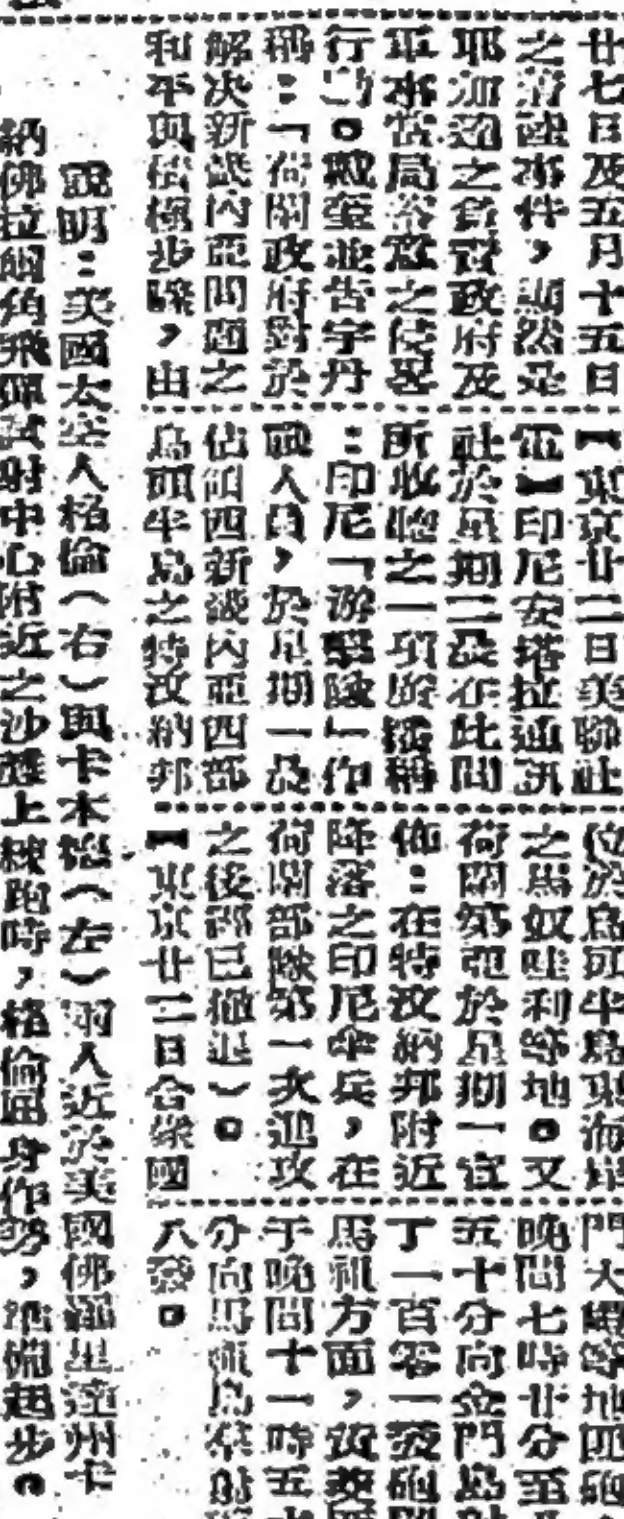 廿七日及五月十五日
之登陸事件，顯然是
耶加達之負責政府及
軍事當局蓄意之侵畧
行動。戴奎並告宇丹
稱：「荷蘭政府對於
解決新畿內亞問題之
和平與積極步驟，由
【東京廿二日美聯社
電】印尼安塔拉通訊
社於星期二晚在此間
所收聽之一項廣播稱
：印尼「游擊隊」作
戰人員，於星期一晚
佔領西新畿內亞西部
鳥頭半島之特汶納邦
位於鳥頭半島東海岸
之馬奴哇利等地。又
荷蘭第亞於星期一宣
佈：在特汶納邦附近
降落之印尼傘兵，在
荷蘭部隊第一次進攻
之後都已撤退）。
【東京廿二日合衆國
門大嶝等地四砲
晚間七時廿分至
五十分向金門島射
丁一百零一發砲
馬祖方面，
于晚間十一時五
分向馬祖島羣射
八發。
說明：美國太空人格倫（右）與卡本特（左）兩人近於美國佛羅里達州卡
納佛拉爾角飛彈試射中心附近之沙灘上練跑時，格倫屈身作勢，準備起步。